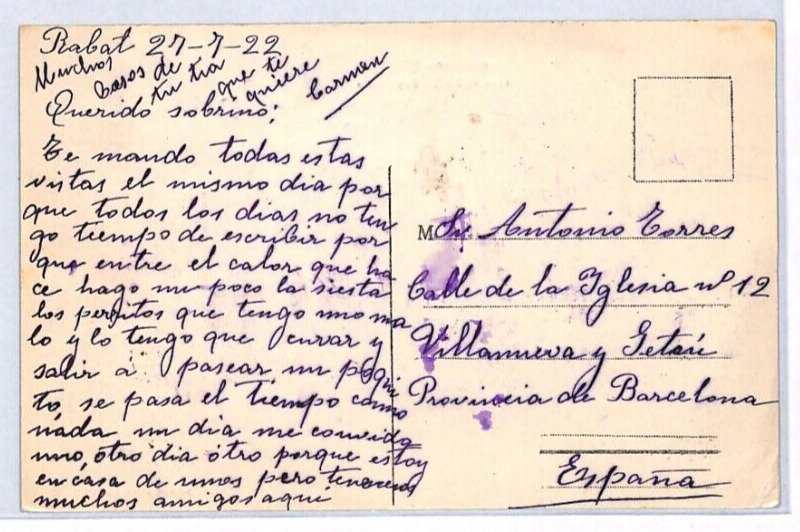 Rabat 27-7-22
Muchos besos de tu tia que te quiere Carmen
Querido sobrino;
Te mando todas estas
vistas el mismo dia por
que todos los dias no ten
go tiempo de escribir por
que entre el calor que ha
ce hago un poco la siesta
los perritos que tengo uno ma
lo y lo tengo que curar y
salir á pasear un poqui
tó, se pasa el tiempo como
náda un dia me convida
uno, otro dia otro porque estoy
en casa de unos pero tenemos
muchos amigos aque
M Sr. Antonio Torres
Calle de la Iglesia nº 12
Villanueva y Getrú
Provincia de Barcelona
España